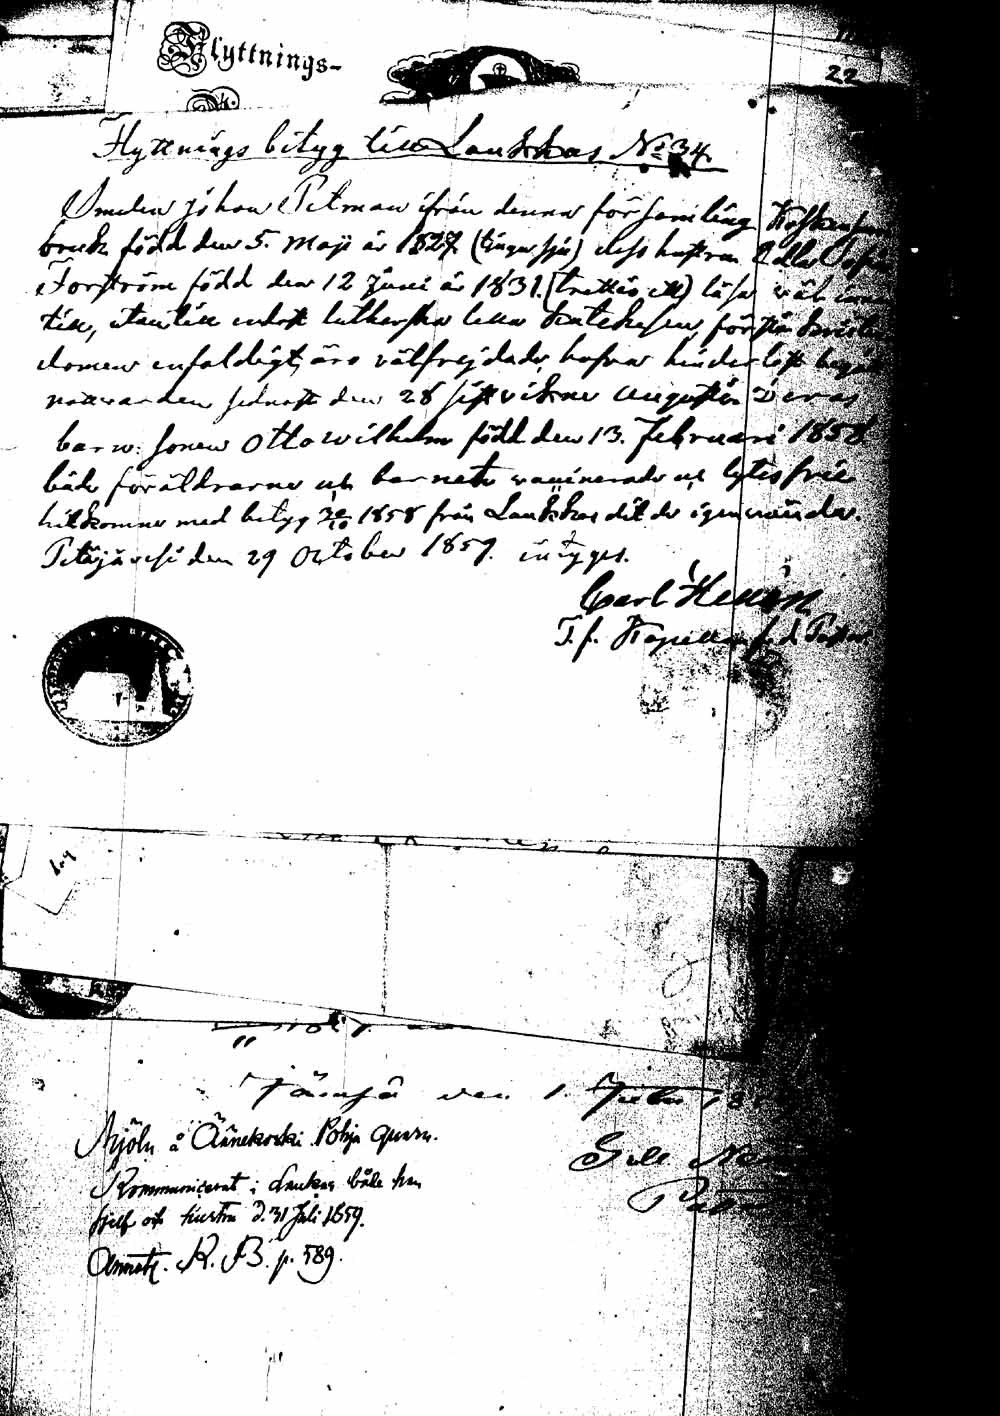 Flyttnings-
22
Flyttnings bityg till Laukkas No 34.
Smeden Johan Pitman ifrån denna församling
bruk född den 5. Maji år 1827 (tjugu sju) dess hustru
Forström född den 12 Juni år 1831. (trettio ett) läsa väl
till, utantill lutherska lilla Katekesen, förstå
domen enfaldigt, äro välfrejdade, hafva hinderlöst
den sednast den 28 sistvikne Augusti deras
barn: sonen Otto Wilhelm född den 13. Februari 1858
både föräldrarne och barnet vaccinerade och lytesfrie
hitkomne med bityg 1858 från Laukkas dit de igenvända.
Petäjävesi den 29 October 1859. intygas.
Carl Hellén
T. f. Kapellan
den 1. 18
Mjöln. å Äänekoski Pohja quarn.
Kommunicerat i Laukas både han
sjelf och hustru d. 31 Juli 1859.
Annot. K. B. p. 589.